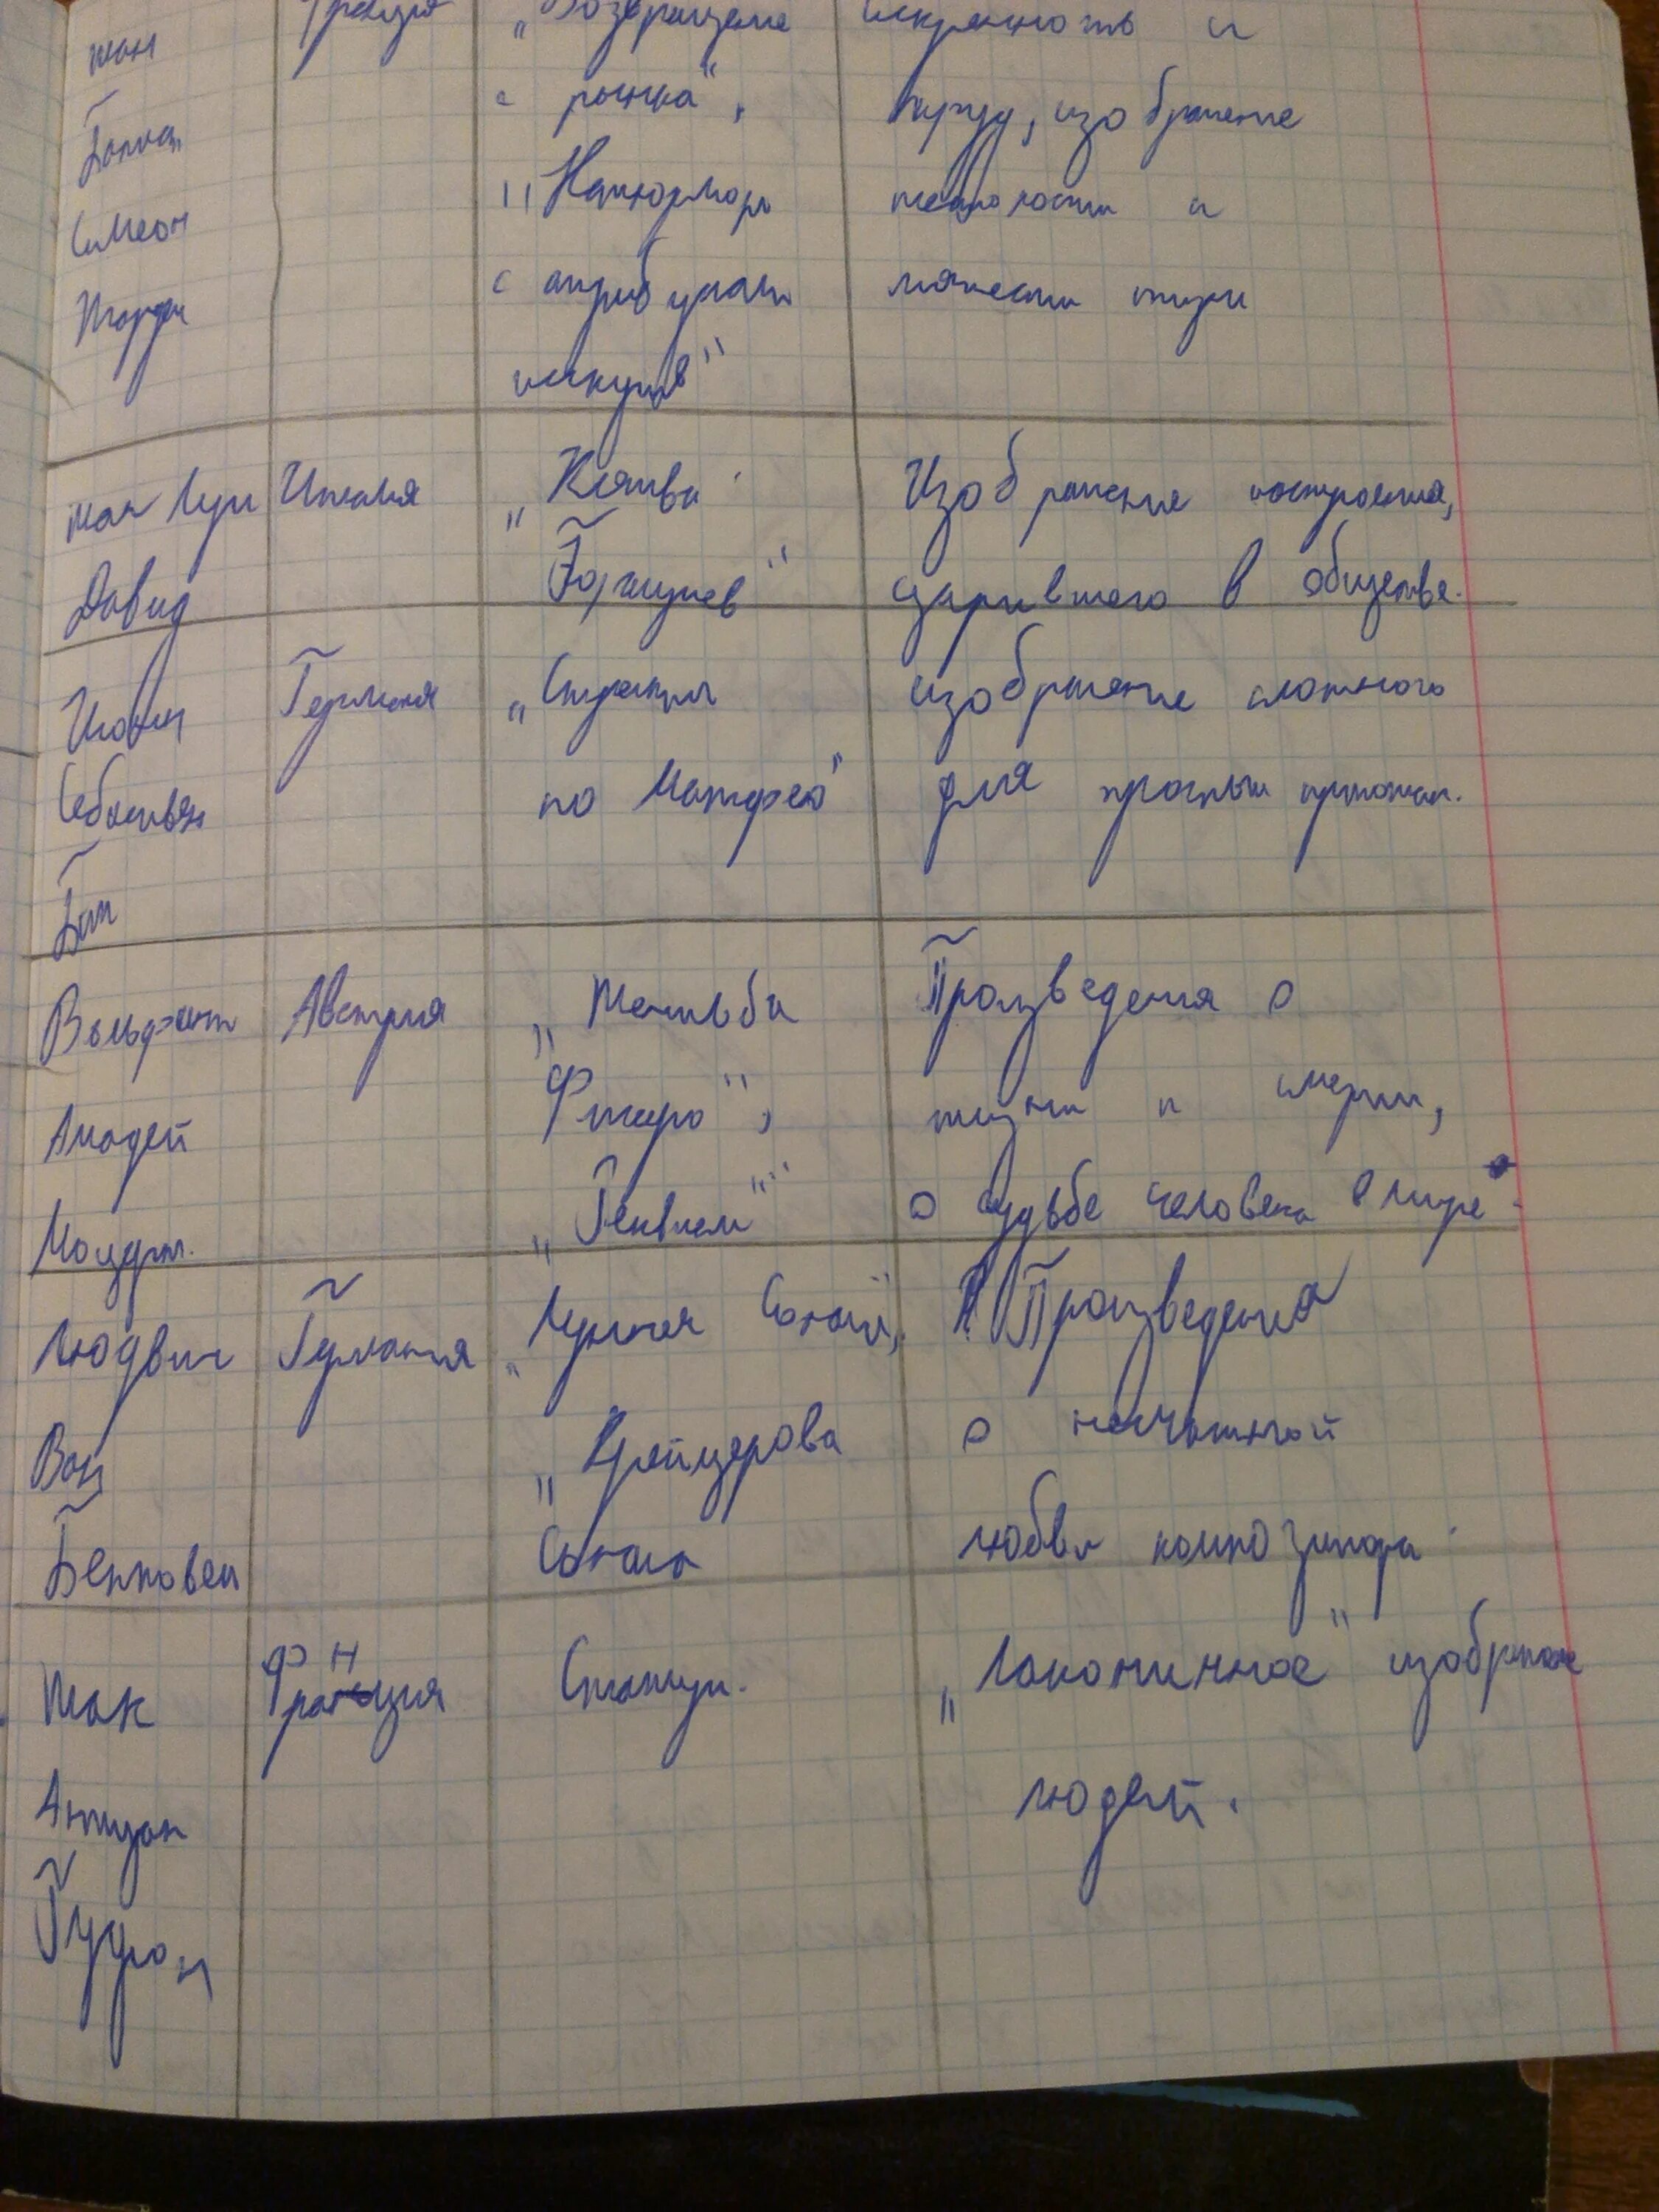 Жан Франция „Возвращение искренность и
Батист с рынка", правду, изображение
Симеон „Натюрморт теплоты и
Шарден с атрибутами мягкости жизни
искусств"
Жан Луи Италия „Клятва Изображение настроения,
Давид Горациев" царившего в обществе.
Иоганн Германия „Страсти изображение сложного
Себастьян по Матфею" для простых прихожан.
Бах
Вольфганг Австрия „Женитьба Произведения о
Амадей Фигаро", жизни и смерти,
Моцарт. „Реквием" о судьбе человека в мире.
Людвиг Германия „Лунная Соната", Произведения
Ван „Крейцерова о несчастной
Бетховен Соната любви композитора.
Жак Франция Статуи. „Лаконичное" изображение
Антуан людей.
Гудон